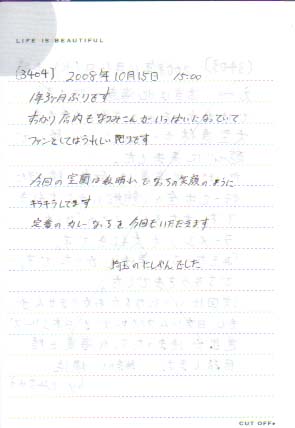 LIFE IS BEAUTIFUL
[3404] 2008年10月15日 15:00
1年3ヶ月ぶりです
すっかり店内もなつみこんがいっぱいになっていて
ファンとしてはうれしい限りです
今回の室蘭は秋晴れでなっちの笑顔のように
キラキラしてます
定番のカレーなっちを今回もいただきます
埼玉のにしやんでした
CUT OFF